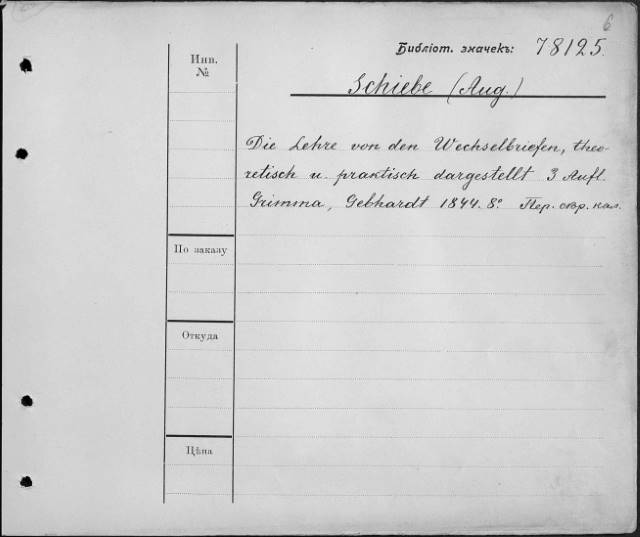 6
Библіот. значекъ: 78125.
Инв.
№
Schiebe (Aug.)
Die Lehre von den Wechselbriefen, theo-
retisch u. praktisch dargestellt 3 Aufl.
Grimma, Gebhardt 1844. 8º Пер. сбр. кал.
По заказу
Откуда
Цѣна